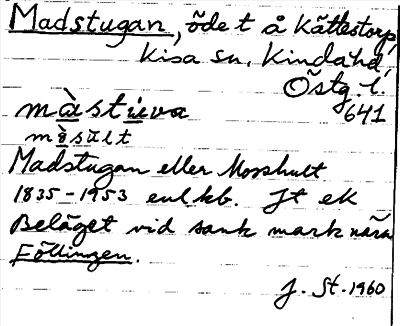 Madstugan, öde t å Kättestorp,
Kisa sn, Kinda hd,
Östg. l.
641
màstùva
mòsùlt
Madstugan eller Mosshult
1835-1953 enl kb. Jt ek
Beläget vid sank mark nära
Föllingen.
J. St. 1960